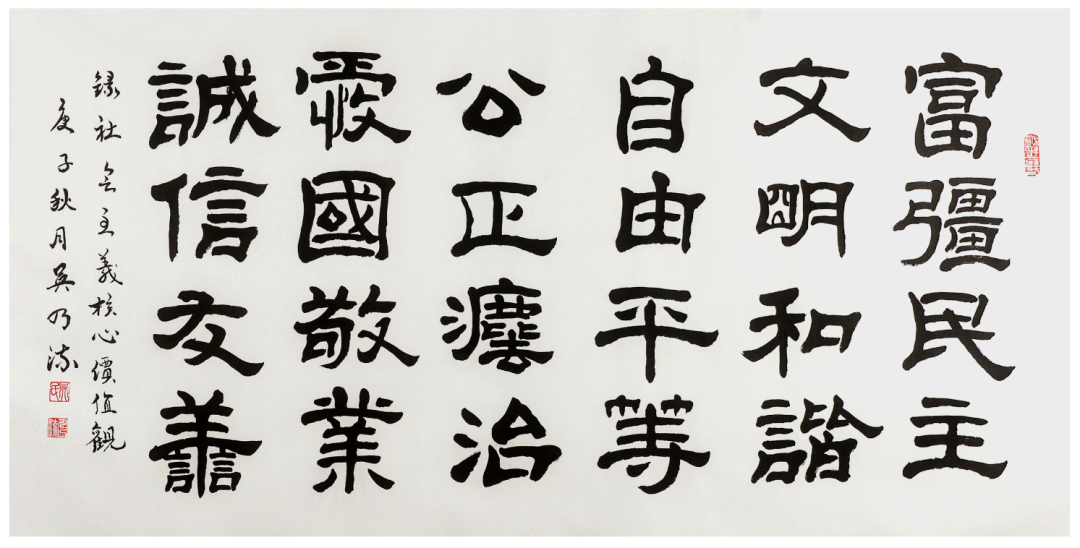 富彊民主
文明和諧
自由平等
公正灋治
愛國敬業
誠信友譱
錄社会主義核心價值觀
庚子秋月吳乃流